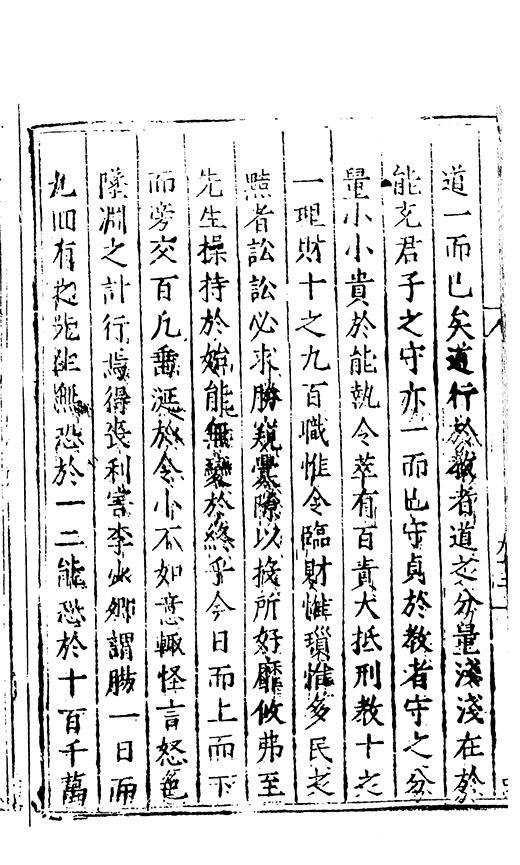 道一而已矣道行於教者道之分量淺淺在於
能克君子之守亦一而已守貞於教者守之分
量小小貴於能執令萃有百責大抵刑教十之
一理財十之九百職惟令臨財惟瑣惟多民之
黠者訟訟必求勝窺釁隙以投所好靡攸弗至
先生操持於始能無變於終乎今日而上而下
而旁交百凡垂涎於令小不如意輒怪言怒色
墜淵之計行焉得喪利害李謂腸一日而
九回有無恐於一二能恐於十百千萬